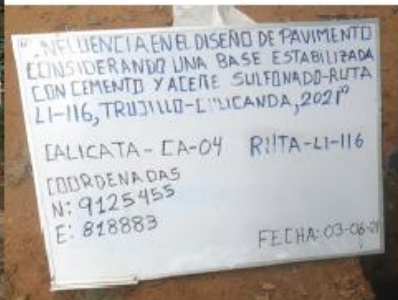 "INFLUENCIA EN EL DISEÑO DE PAVIMENTO
CONSIDERANDO UNA BASE ESTABILIZADA
CON CEMENTO Y ACEITE SULFONADO-RUTA
LI-116, TRUJILLO- 2021"
CALICATA - CA-04 RUTA-LI-116
COORDENADAS
N: 9125455
E: 818883
FECHA: 03-06-21